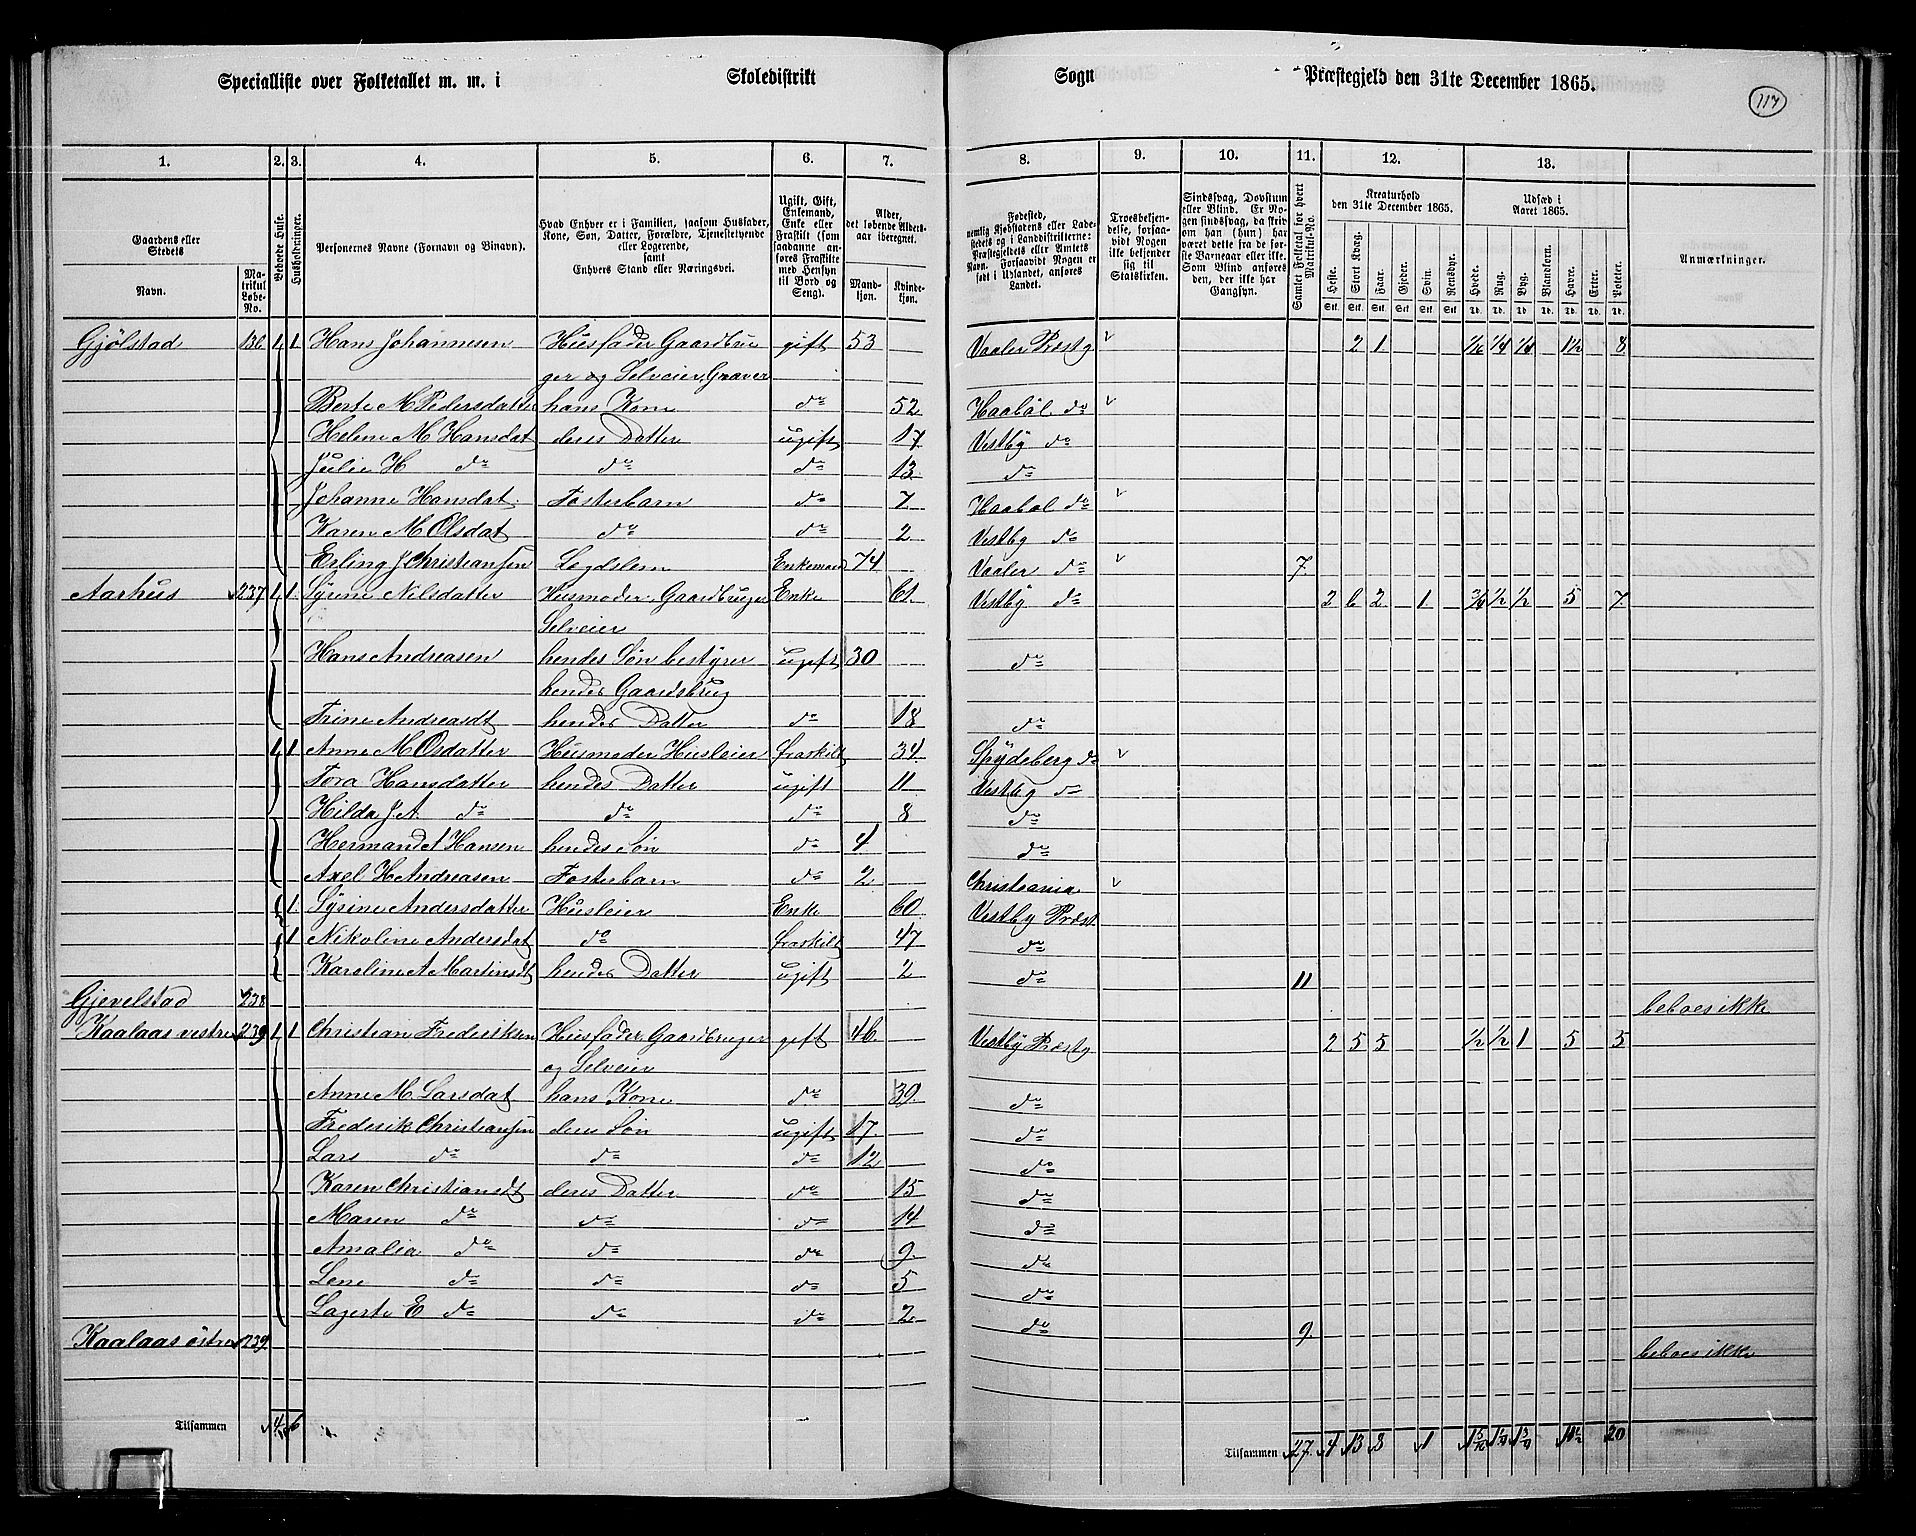 Specialliste over Folketallet m. m. i Skoledistrikt Sogn Præstegjeld den 31te December 1865.
117
1. 2. 3. 4. 5. 6. 7. 8. 9. 10. 11. 12. 13.
Gaardens eller Stedets
Navn.
Matrikul Løbe-No.
Beboede Huse.
Husholdninger.
Personernes Navne (Fornavn og Binavn).
Hvad Enhver er i Familien, saasom Husfader, Kone, Søn, Datter, Forældre, Tjenestetyende eller Logerende, samt Enhvers Stand eller Næringsvei.
Ugift, Gift, Enkemand, Enke eller Fraskilt (som saadanne anføres Fraskilte med Hensyn til Bord og Seng).
Alder, det løbende Alders-aar iberegnet.
Mandkjøn.
Kvindekjøn.
Fødested, nemlig Kjøbstadens eller Ladestedets og i Landdistrikterne: Præstegjeldets eller Amtets Navn. Forsaavidt Nogen er født i Udlandet, anføres Landet.
Troesbekjendelse, forsaavidt Nogen ikke bekjender sig til Statskirken.
Sindssvag, Døvstum eller Blind. Er Nogen sindssvag, da skriv om han (hun) har været dette fra de første Barneaar eller ikke. Som Blind anføres den, der ikke har Gangsyn.
Samlet Folketal for hvert Matrikul-No.
Kreaturhold den 31te December 1865.
Heste. Stort Kvæg. Faar. Gjeder. Svin. Rensdyr.
Stk. Stk. Stk. Stk. Stk. Stk.
Udsæd i Aaret 1865.
Hvede. Rug. Byg. Blandkorn. Havre. Erter. Poteter.
Td. Td. Td. Td. Td. Td. Td.
Anmærkninger.
Gjølstad 1 1 Hans Johannesen Husfader Gaardbru gift 53 Vaaler Præstg 2 1 1/16 1/4 1/4 1½ 8
ger og Selveier, Graver
Berte M Pedersdatter hans Kone do 52 Haabøl do
Helene M Hansdat deres Datter ugift 17 Vestby do
Julie H do do do 13 do
Johanne Hansdat. Fosterbarn do 7 Haabøl do
Karen M Olsdat do do 2 Vestby do
Erling J Christiansen Legdslem Enkemand 74 Vaaler do 7.
Aarhus 237 1 1 Syrine Nilsdatter Husmoder Gaardbruger Enke 61 Vestby do 2 6 2 1 ½ ½ 5 7
Selveier
Hans Andreasen hendes Søn bestyrer ugift 30 do
hendes Gaardsbrug
Trine Andreasdt hendes Datter do 18 do
1 1 Anne M Osdatter Husmoder Husleier fraskilt 34 Spydeberg do
Tora Hansdatter hendes Datter ugift 11 Vestby do
Hilda J. A. do do do 8 do
Herman Hansen hendes Søn do 4 do
Axel H Andreasen Fosterbarn do 2 Christiania
1 Syrine Andersdatter Husleier Enke 60 Vestby Præst
1 Nikoline Andersdat do fraskilt 47 do
Karoline A Martinsdt hendes Datter ugift 2 do 11
Gjevelstad 238 beboes ikke
Kaalaas vestre 239 1 1 Christian Frederiksen Husfader Gaardbruger gift 46 Vestby Præstg 2 5 5 ½ ½ 1 5 5
og Selveier
Anne M. Larsdat hans Kone do 39. do
Frederik Christiansen deres Søn ugift 17. do
Lars do do do 12 do
Karen Christiansdt deres Datter do 15 do
Maren do do do 14 do
Amalia do do do 9. do
Lene do do do 5 do
Lagerte E do do do 2 do 9
Kaalaas østre 239. beboes ikke
Tilsammen 4 6
Tilsammen 27 4 13 8 1 20